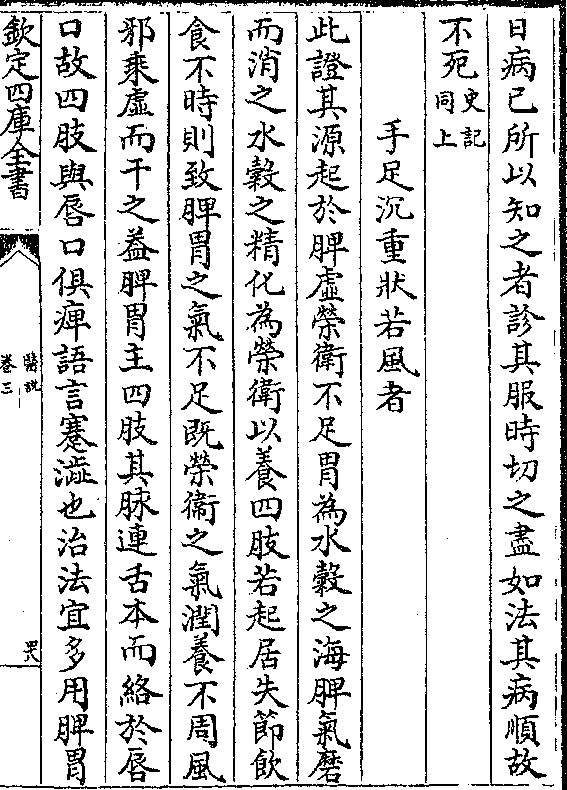 日病已所以知之者診其服時切之盡如法其病順故
不死史記同上
手足沉重狀若風者
此證其源起於脾虛榮衛不足胃為水穀之海脾氣磨
而消之水穀之精化為榮衛以養四肢若起居失節飲
食不時則致脾胃之氣不足既榮衞之氣潤養不周風
邪乘虛而干之益脾胃主四肢其脉連舌本而絡於唇
口故四肢與唇口俱痺語言蹇澁也治法宜多用脾胃
欽定四庫全書
醫説
卷三
罘